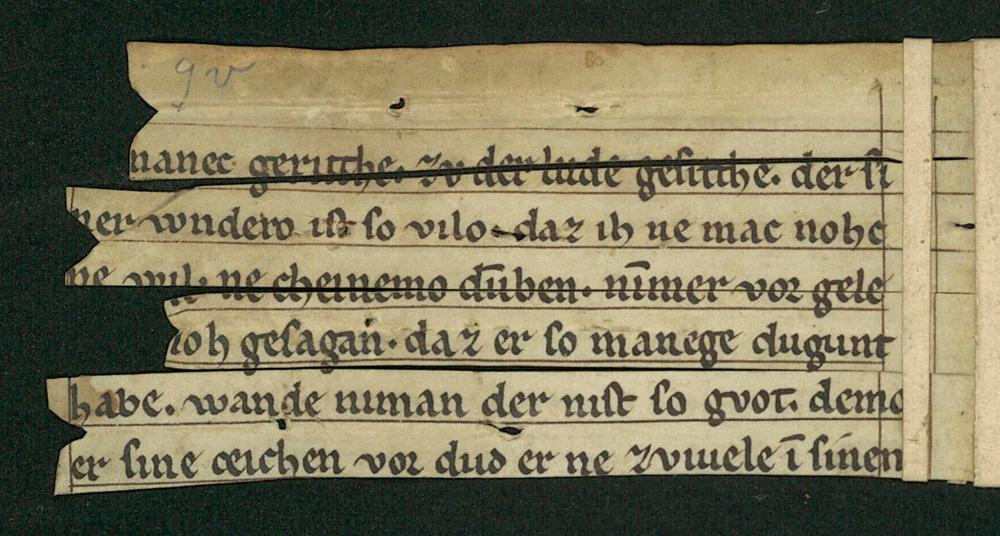 9v
manec geruche. zv der lude gesuche. der si
ner wndero ist so vilo. daz ih ne mac nohc
ne wil. ne cheinemo dūben. nīmer vor gele
ioh gesagan. daz er so manege dugunt
habe. wande niman der nist so gvot. demo
er sine ceichen vor duo er ne zviuele ī sinen